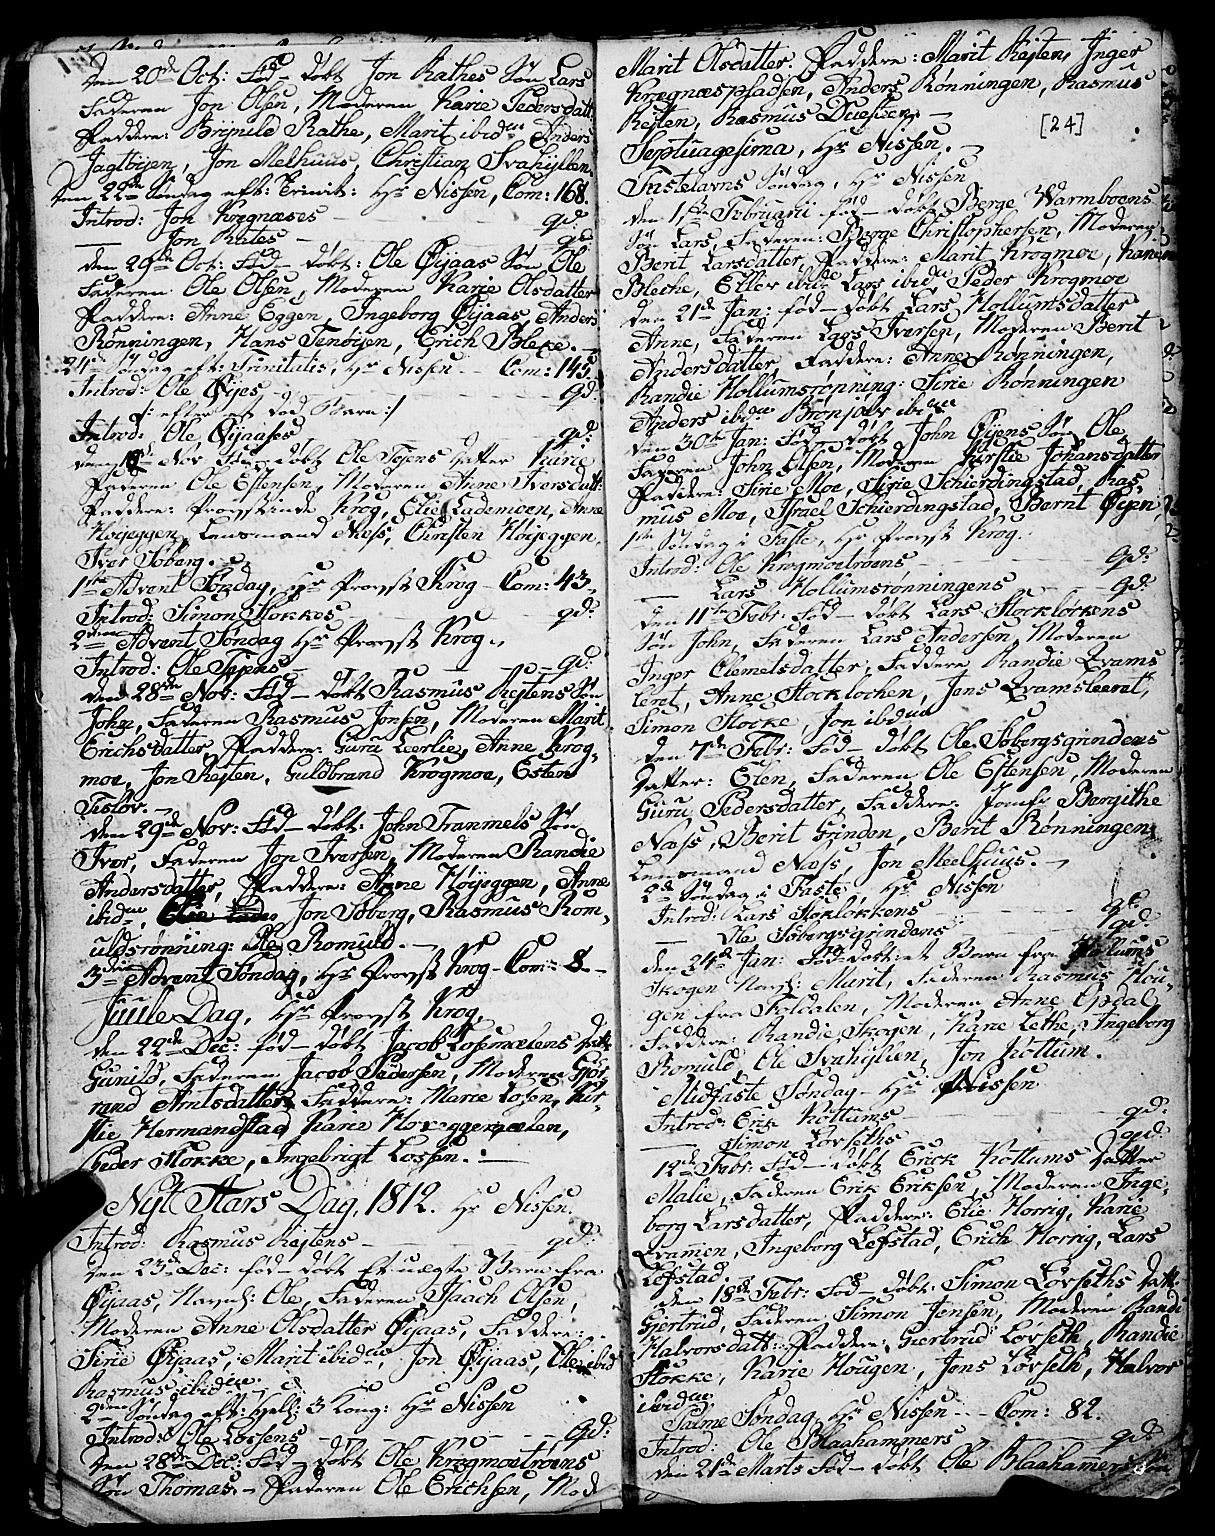 den 20de Oct: Fød - døbt Jon Rathes Søn Lars
Faderen Jon Olsen, Moderen Karie Pedersdatt:
Faddere: Brynild Rathe, Marit ibidem Anders
Jagtøyen, Jon Melhuus, Christian Svahyllen.
den 22de Søndag eft: Trinit: Hr Nissen, Com: 168.
Introd: Jon Krognæses - qd:
— Jon Rates - qd:
den 29de Oct: Fød - døbt: Ole Øijaas Søn Ole
Faderen Ole Olsen, Moderen Karie Olsdatter
Faddere: Anne Eggen, Ingeborg Øijaas, Anders
Rønningen, Hans Tenøijen, Erich Bleke. -
24de Søndag eft: Trinitatis, Hr Nissen - Com: 145.
Introd: Ole Øyes - qd:
/: efter et død Barn :/
Introd: Ole Øijaases - qd:
den Nov Fød - døbt Ole Teigens Datter Karie
Faderen Ole Estensen, Moderen Anne Iversdatt:
Faddere: Provstinde Krog, Elie Lademoen, Anne
Høijeggen, Lensmand Næss, Christen Høijeggen,
Iver Søberg. -
1ste Advent Søndag, Hr Provst Krog - Com: 43.
Introd: Simon Stokkes - qd:
2den Advent Søndag Hr Provst Krog.
Introd: Ole Tejens - qd:
den 28de Nov: Fød - døbt Rasmus Røstens Søn
John, Faderen Rasmus Jonsen, Moderen Marit
Erichsdatter, Faddere: Guru Leerlie, Anne Krog-
moe, Jon Røsten, Guldbrand Krogmoe, Esten
Tisløv. -
den 29de Nov: Fød - døbt: John Tranmels Søn
Iver, Faderen Jon Iversen, Moderen Randie
Andersdatter, Faddere: Anne Høijeggen, Anne
ibidem, Jon Søberg, Rasmus Rom-
uldsrønning: Ole Romuld. -
3die Advent Søndag, Hr Provst Krog - Com: 8 -
Juule Dag, Hr Provst Krog,
den 22de Dec: fød - døbt Jacob Losemælens Datt:
Gunild, Faderen Jacob Pedersen, Moderen Giør-
rand Arntsdatter, Faddere: Marie Losen, Kir-
stie Hermanstad Karie
Peder Stokke, Ingebrigt Lossen. -
Nyt Aars Dag, 1812. Hr Nissen.
Introd: Rasmus Røstens - qd:
den 23de Dec: fød - døbt Et uægte Barn fra
Øijaas, Navnl: Ole, Faderen Isaach Olsen,
Moderen Anne Olsdatter Øijaas, Faddere:
Sirie Øijaas, Marit ibidem, Jon Øijaas, Ole ibid
Rasmus ibidem.
2den Søndag eft: Hell: 3 Kong: Hr Nissen
Introd: Ole Lossens - qd:
den 28de Dec: Fød - døbt Ole Krogmoetrøens
Søn Thomas. - Faderen Ole Erichsen, Mod
Marit Olsdatter. Faddere: Marit Røsten, Inger
Krognæspladsen, Anders Rønningen, Rasmus
Røsten, Rasmus
[24]
Septuagesima, Hr Nissen. -
Fastelavns Søndag, Hr Nissen
den 1ste Februarii fød - døbt Berge Warmboens
Søn Lars, Faderen: Berge Christophersen, Moderen
Berit Larsdatter, Faddere: Marit Krogmoe, Karen
Bleche, Ellev ibidem Lars ibidem Peder Krogmoe
den 21de Jan: fød - døbt Lars Hollumsdatter
Anne, Faderen Lars Iversen, Moderen Berit
Andersdatter, Faddere: Anne Rønningen,
Randie Hollumsrønning: Sirie Rønningen
Anders ibidem Brønjolv ibidem
den 30te Jan: Fød - døbt John Øijens Søn Ole
Faderen John Olsen, Moderen Kirstie Johansdatter
Faddere: Sirie Moe, Sirie Schierdingstad, Ras-
mus Moe, Israel Schierdingstad, Bernt Øijen,
1ste Søndag i Faste, Hr Provst Krog.
Introd: Ole Krogmoetrøens - qd:
— Lars Hollumsrønningens - qd:
den 11te Febr: Fød - døbt Lars Stocklockens
Søn John, Faderen Lars Andersen, Moderen
Inger Clemetsdatter, Faddere Randie Qvams
leret, Anne Stocklochen, Jens Qvamsleeret,
Simon Stocke, Jon ibidem
den 7de Febr: Fød - døbt Ole Søbergsgrindens
Datter: Elen, Faderen Ole Estensen, Moderen
Guru Pedersdatter, Faddere: Jomfr Bergithe
Næss, Berit Grinden, Berit Rønningen,
Lensmand Næss, Jon Meelhuus. -
2de Søndag i Faste Hr Nissen
Introd: Lars Stokløkkens - qd:
— Ole Søbergsgrindens qd:
den 24de Jan: Fød - døbt et Barn fra Hollums
Skogen Navnl: Marit, Faderen Rasmus Hou-
gen fra Foldalen, Moderen Anne Opdal,
Faddere: Randie Skogen, Karie Lethe, Ingeborg
Romuld, Ole Svahyllen, Jon Kottum.
Midfaste Søndag - Hr Nissen
Introd: Erik Kottums - qd:
— Simon Lørseths qd:
12de Febr: Fød - døbt Erick Kottums Datter
Malie, Faderen Erik Eriksen, Moderen Inge-
borg Larsdatter, Faddere: Elie Horrig, Karie
Qvamen, Ingeborg Lefstad, Erich Horrig, Lars
Lefstad.
den 18de Febr: Fød - døbt: Simon Lørseths Datt:
Giertrud, Faderen Simon Jensen, Moderen Randi
Halvorsdatt: Faddere: Giertrud Lørseth, Randie
Stokke, Karie Hougen, Jens Lørseth, Halvor
ibidem
Palme Søndag Hr Nissen - Com: 82.
Introd: Ole Blaahammers - qd:
den 21de Marts Fød - døbt Ole Blaahamers Søn